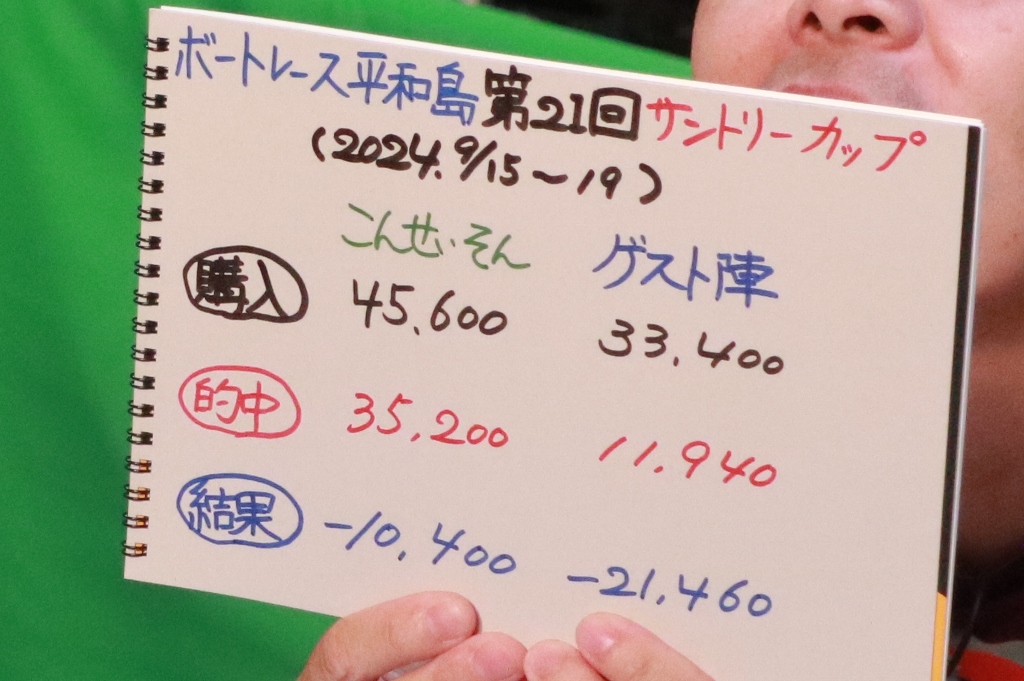 ボートレース平和島第21回サントリーカップ
(2024.9/15~19)
こんせいそん ゲスト陣
購入 45,600 33.400
的中 35,200 11.940
結果 -10,400 -21.460